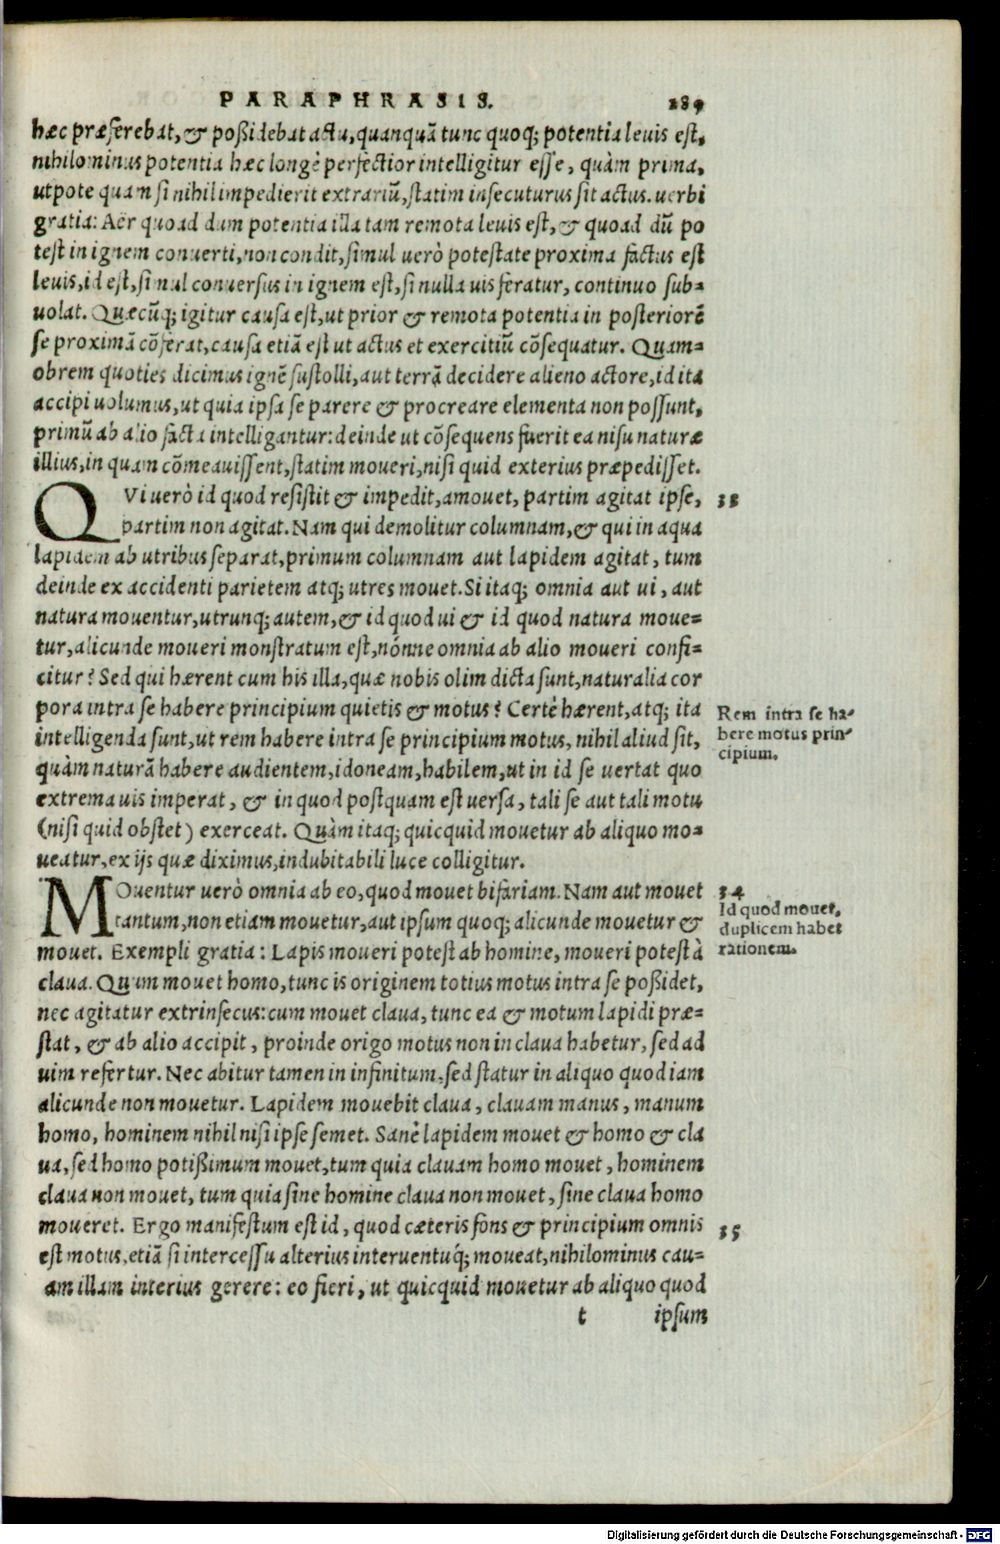 PARAPHRASIS. 289
hæc præferebat, & poßidebat actu, quanquã tunc quoq; potentia leuis est,
nihilominus potentia hæc longè perfectior intelligitur esse, quàm prima,
utpote quam si nihil impedierit extrariũ, statim insecuturus sit actus. uerbi
gratia: Aër quoad dum potentia illa tam remota leuis est, & quoad dũ po
test in ignem conuerti, non condit, simul uerò potestate proxima factus est
leuis, id est, simul conuersus in ignem est, si nulla uis feratur, continuo sub-
uolat. Quæcũq; igitur causa est, ut prior & remota potentia in posteriorẽ
se proximã cõferat, causa etiã est ut actus et exercitiũ cõsequatur. Quam-
obrem quoties dicimus ignẽ sustolli, aut terrã decidere alieno actore, id ita
accipi uolumus, ut quia ipsa se parere & procreare elementa non possunt,
primũ ab alio facta intelligantur: deinde ut cõsequens fuerit ea nisu naturæ
illius, in quam cõmeauissent, statim moueri, nisi quid exterius præpedisset.
QVi uerò id quod resistit & impedit, amouet, partim agitat ipse, 33
partim non agitat. Nam qui demolitur columnam, & qui in aqua
lapidem ab utribus separat, primum columnam aut lapidem agitat, tum
deinde ex accidenti parietem atq; utres mouet. Si itaq; omnia aut ui, aut
natura mouentur, utrunq; autem, & id quod ui & id quod natura moue-
tur, alicunde moueri monstratum est, nónne omnia ab alio moueri confi-
citur? Sed qui hærent cum his illa, quæ nobis olim dicta sunt, naturalia cor
pora intra se habere principium quietis & motus? Certè hærent, atq; ita
intelligenda sunt, ut rem habere intra se principium motus, nihil aliud sit,
quàm naturã habere audientem, idoneam, habilem, ut in id se uertat quo
extrema uis imperat, & in quod postquam est uersa, tali se aut tali motu
(nisi quid obstet) exerceat. Quàm itaq; quicquid mouetur ab aliquo mo-
ueatur, ex ijs quæ diximus, indubitabili luce colligitur.
Rem intra se ha-
bere motus prin-
cipium.
MOuentur uerò omnia ab eo, quod mouet bifariam. Nam aut mouet
tantum, non etiam mouetur, aut ipsum quoq; alicunde mouetur &
mouet. Exempli gratia: Lapis moueri potest ab homine, moueri potest à
claua. Quum mouet homo, tunc is originem totius motus intra se poßidet,
nec agitatur extrinsecus: cum mouet claua, tunc ea & motum lapidi præ-
stat, & ab alio accipit, proinde origo motus non in claua habetur, sed ad
uim refertur. Nec abitur tamen in infinitum, sed statur in aliquo quod iam
alicunde non mouetur. Lapidem mouebit claua, clauam manus, manum
homo, hominem nihil nisi ipse semet. Sanè lapidem mouet & homo & cla
ua, sed homo potißimum mouet, tum quia clauam homo mouet, hominem
claua non mouet, tum quia sine homine claua non mouet, sine claua homo
moueret. Ergo manifestum est id, quod cæteris fons & principium omnis
est motus, etiã si intercessu alterius interuentúq; moueat, nihilominus cau-
am illam interius gerere: eo fieri, ut quicquid mouetur ab aliquo quod
34
Id quod mouet,
duplicem habet
rationem.
35
t ipsum
Digitalisierung gefördert durch die Deutsche Forschungsgemeinschaft - DFG